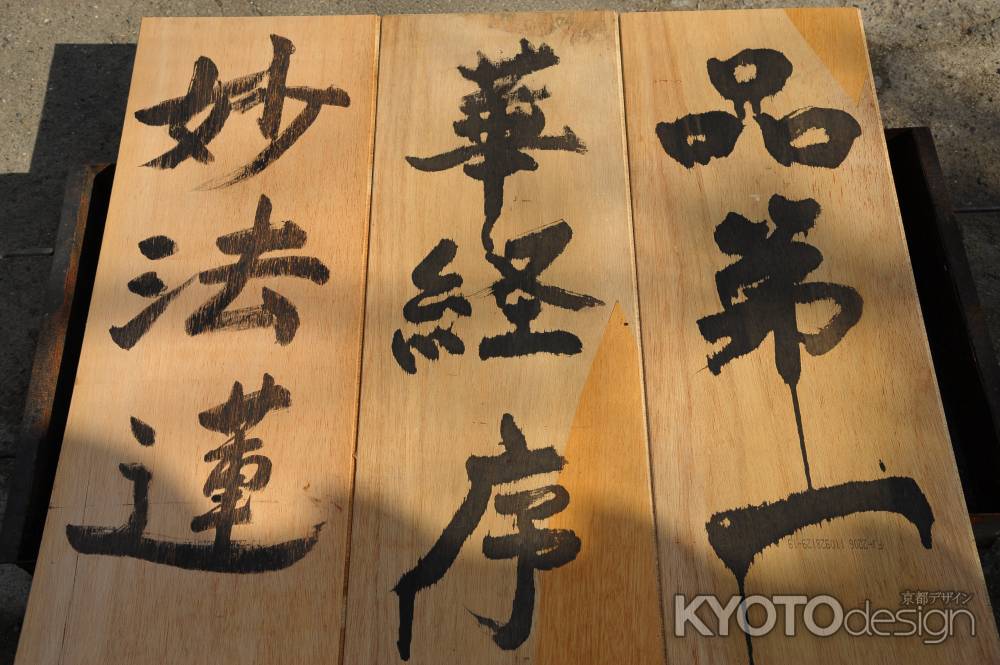 妙法蓮
華経序
品第一
FJ-3206 110928129-19
京都デザイン
KYOTOdesign